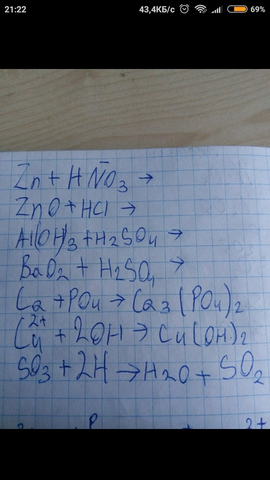 21:22 43,4КБ/с 69%
Zn + HNO3 →
ZnO + HCl →
Al(OH)3 + H2SO4 →
BaO2 + H2SO4 →
Ca + PO4 → Ca3(PO4)2
Cu2+ + 2OH → Cu(OH)2
SO3 + 2H → H2O + SO2